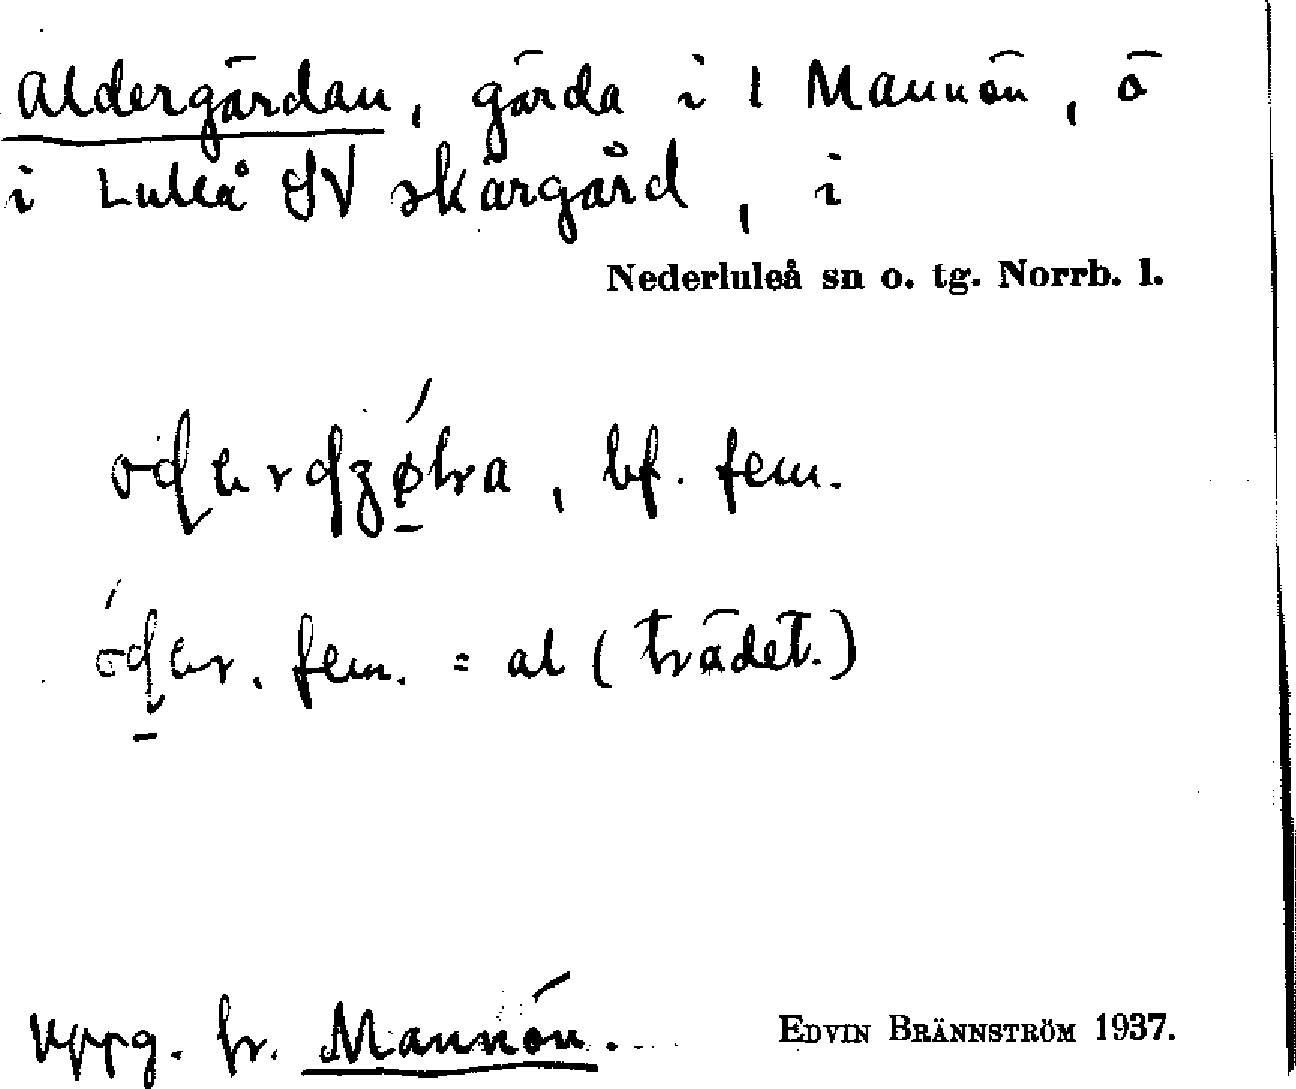 Aldergärdan, gärda i 1 Mannön, ö
i Luleå SV skärgård, i
Nederluleå sn o. tg. Norrb. l.
, bf. fem.
fem. = al (trädet.)
Uppg. fr. Mannön.
EDVIN BRÄNNSTRÖM 1937.